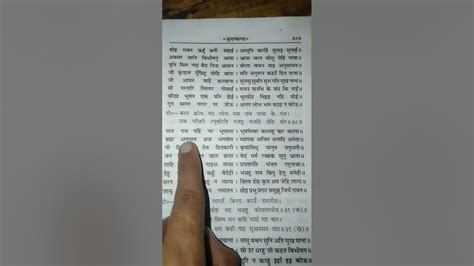 * सुन्दरकाण्ड *
सोइ रावन कहुँ बनी सहाई । अस्तुति करहिं सुनाइ सुनाई ॥
अवसर जानि बिभीषनु आवा । भ्राता चरन सीसु तेहिं नावा ॥
पुनि सिरु नाइ बैठ निज आसन । बोला बचन पाइ अनुसासन ॥
जौ कृपाल पूँछिहु मोहि बाता । मति अनुरूप कहउँ हित ताता ॥
जो आपन चाहै कल्याना । सुजसु सुमति सुभ गति सुख नाना ॥
सो परनारि लिलार गोसाईं । तजउ चउथि के चंद कि नाईं ॥
चौदह भुवन एक पति होई । भूतद्रोह तिष्टइ नहिं सोई ॥
गुन सागर नागर नर जोऊ । अलप लोभ भल कहइ न कोऊ ॥
दो०— काम क्रोध मद लोभ सब नाथ नरक के पंथ ।
सब परिहरि रघुबीरहि भजहु भजहिं जेहि संत ॥ ३८ ॥
तात राम नहिं नर भूपाला । भुवनेस्वर कालहु कर काला ॥
ब्रह्म अनामय अज भगवंता । ब्यापक अजित अनादि अनंता ॥
गो देव हितकारी । कृपासिंधु मानुष तनुधारी ॥
जन खल ब्राता । बेद धर्म रच्छक सुनु भ्राता ॥
माथा । प्रनतारति भंजन रघुनाथा ॥
देहु कहुँ बैदेही । भजहु राम बिनु हेतु सनेही ॥
न त्यागा । बिस्व द्रोह कृत अघ जेहि लागा ॥
नसावन । सोइ प्रभु प्रगट समुझु जियँ रावन ॥
लागउँ बिनय करउँ दससीस ।
मोह मद भजहु कोसलाधीस ॥ ३९ (क) ॥
सिष्य सन कहि पठई यह बात ।
सन कही पाइ सुअवसरु तात ॥ ३९ (ख) ॥
सयाना । तासु बचन सुनि अति सुख माना ॥
सो उर धरहु जो कहत बिभीषन ॥
दूरि न करहु इहाँ हइ कोऊ ॥